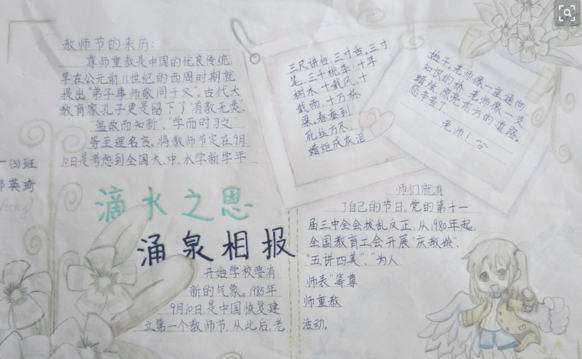 教师节的来历:
尊师重教是中国的优良传统,
早在公元前11世纪的西周时期就
提出"弟子事师敬同于父"。古代大
教育家孔子更是留下了"有教无类"、
"温故而知新"、"学而时习之"
等至理名言。将教师节定在9月
10日是考虑到全国大、中、小学新学年
三尺讲台,三寸舌,三寸
笔,三千桃李,十年
树木,十载风,十
载雨,十万栋
梁。春蚕到
死丝方尽,
蜡炬成灰泪
老师!
滴水之恩
涌泉相报
开始,学校要有
新的气象。1985年
9月10日是中国恢复建
立第一个教师节,从此后,老
师们就有
了自己的节日。党的第十一
届三中全会拨乱反正,从1980年起,
全国教育工会开展"庆教龄"、
"五讲四美"、"为人
师表"等尊
师重教
活动。